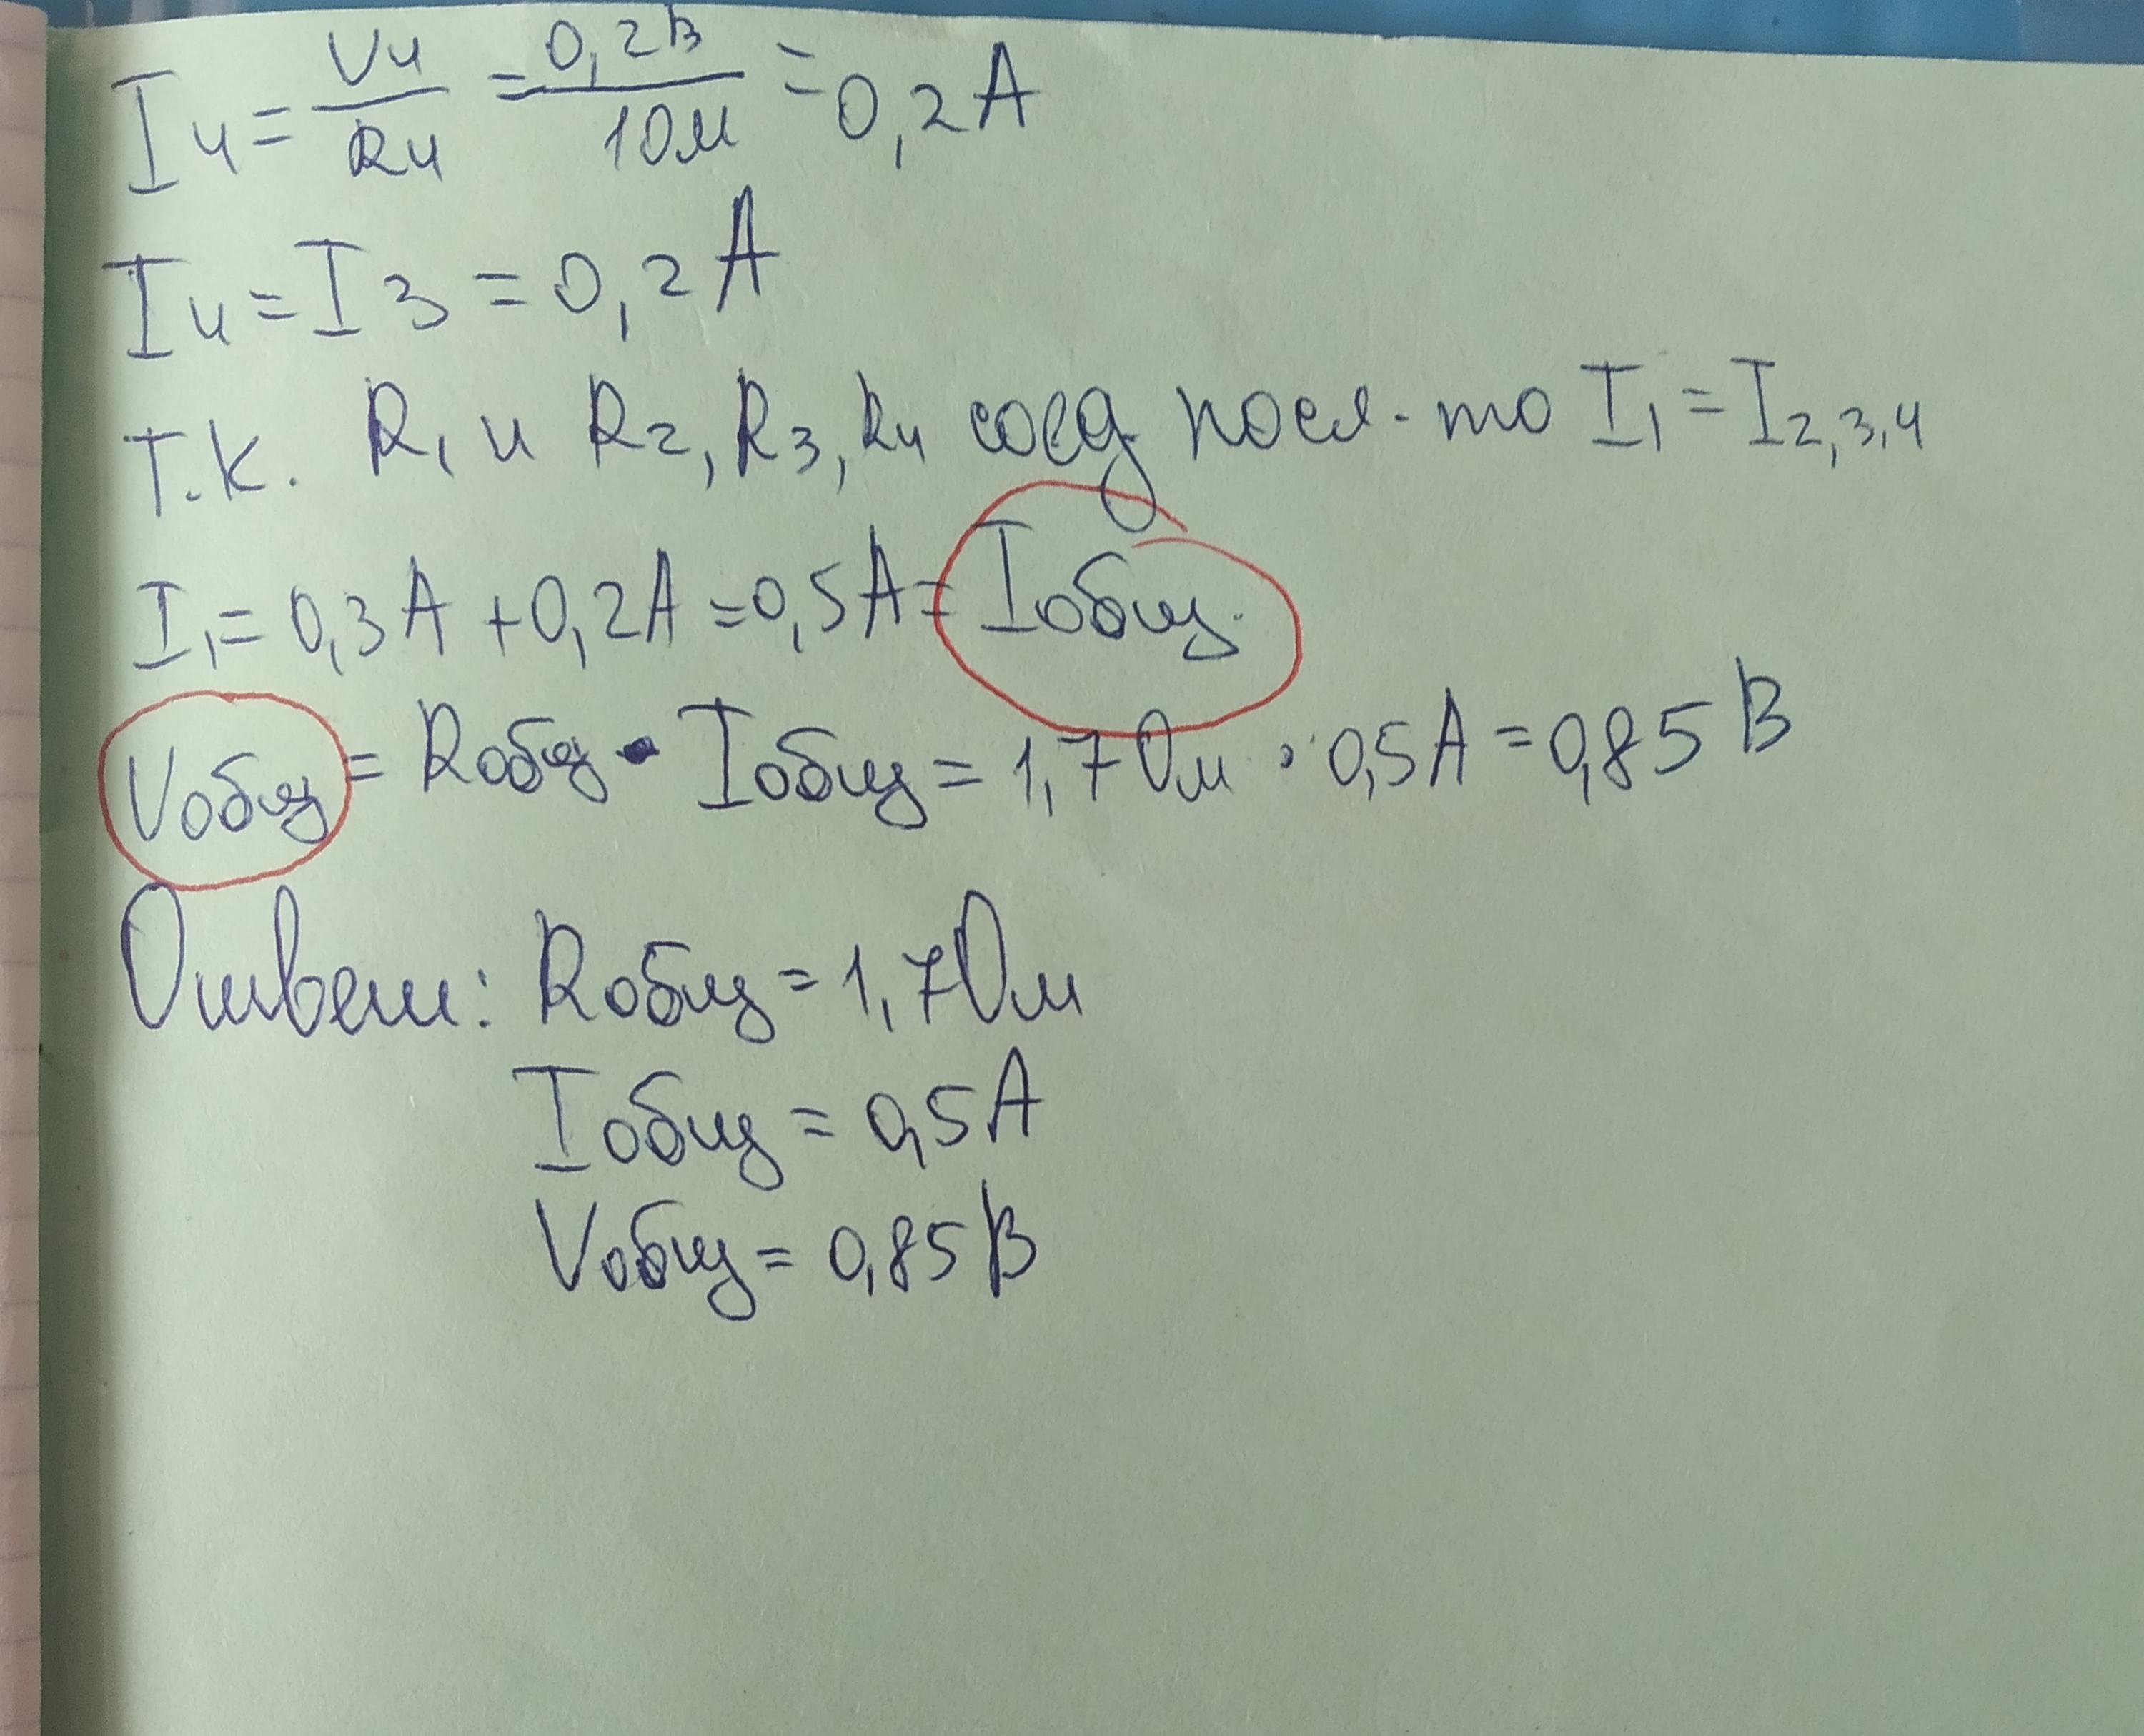 I4 = U4/R4 = 0,2В/1Ом = 0,2А
I4 = I3 = 0,2А
Т.К. R1 и R2, R3, R4 соед посл. то I1 = I2,3,4
I1 = 0,3А + 0,2А = 0,5А = Iобщ.
Uобщ = Rобщ · Iобщ = 1,7Ом · 0,5А = 0,85В
Ответ: Rобщ = 1,7Ом
Iобщ = 0,5А
Uобщ = 0,85В